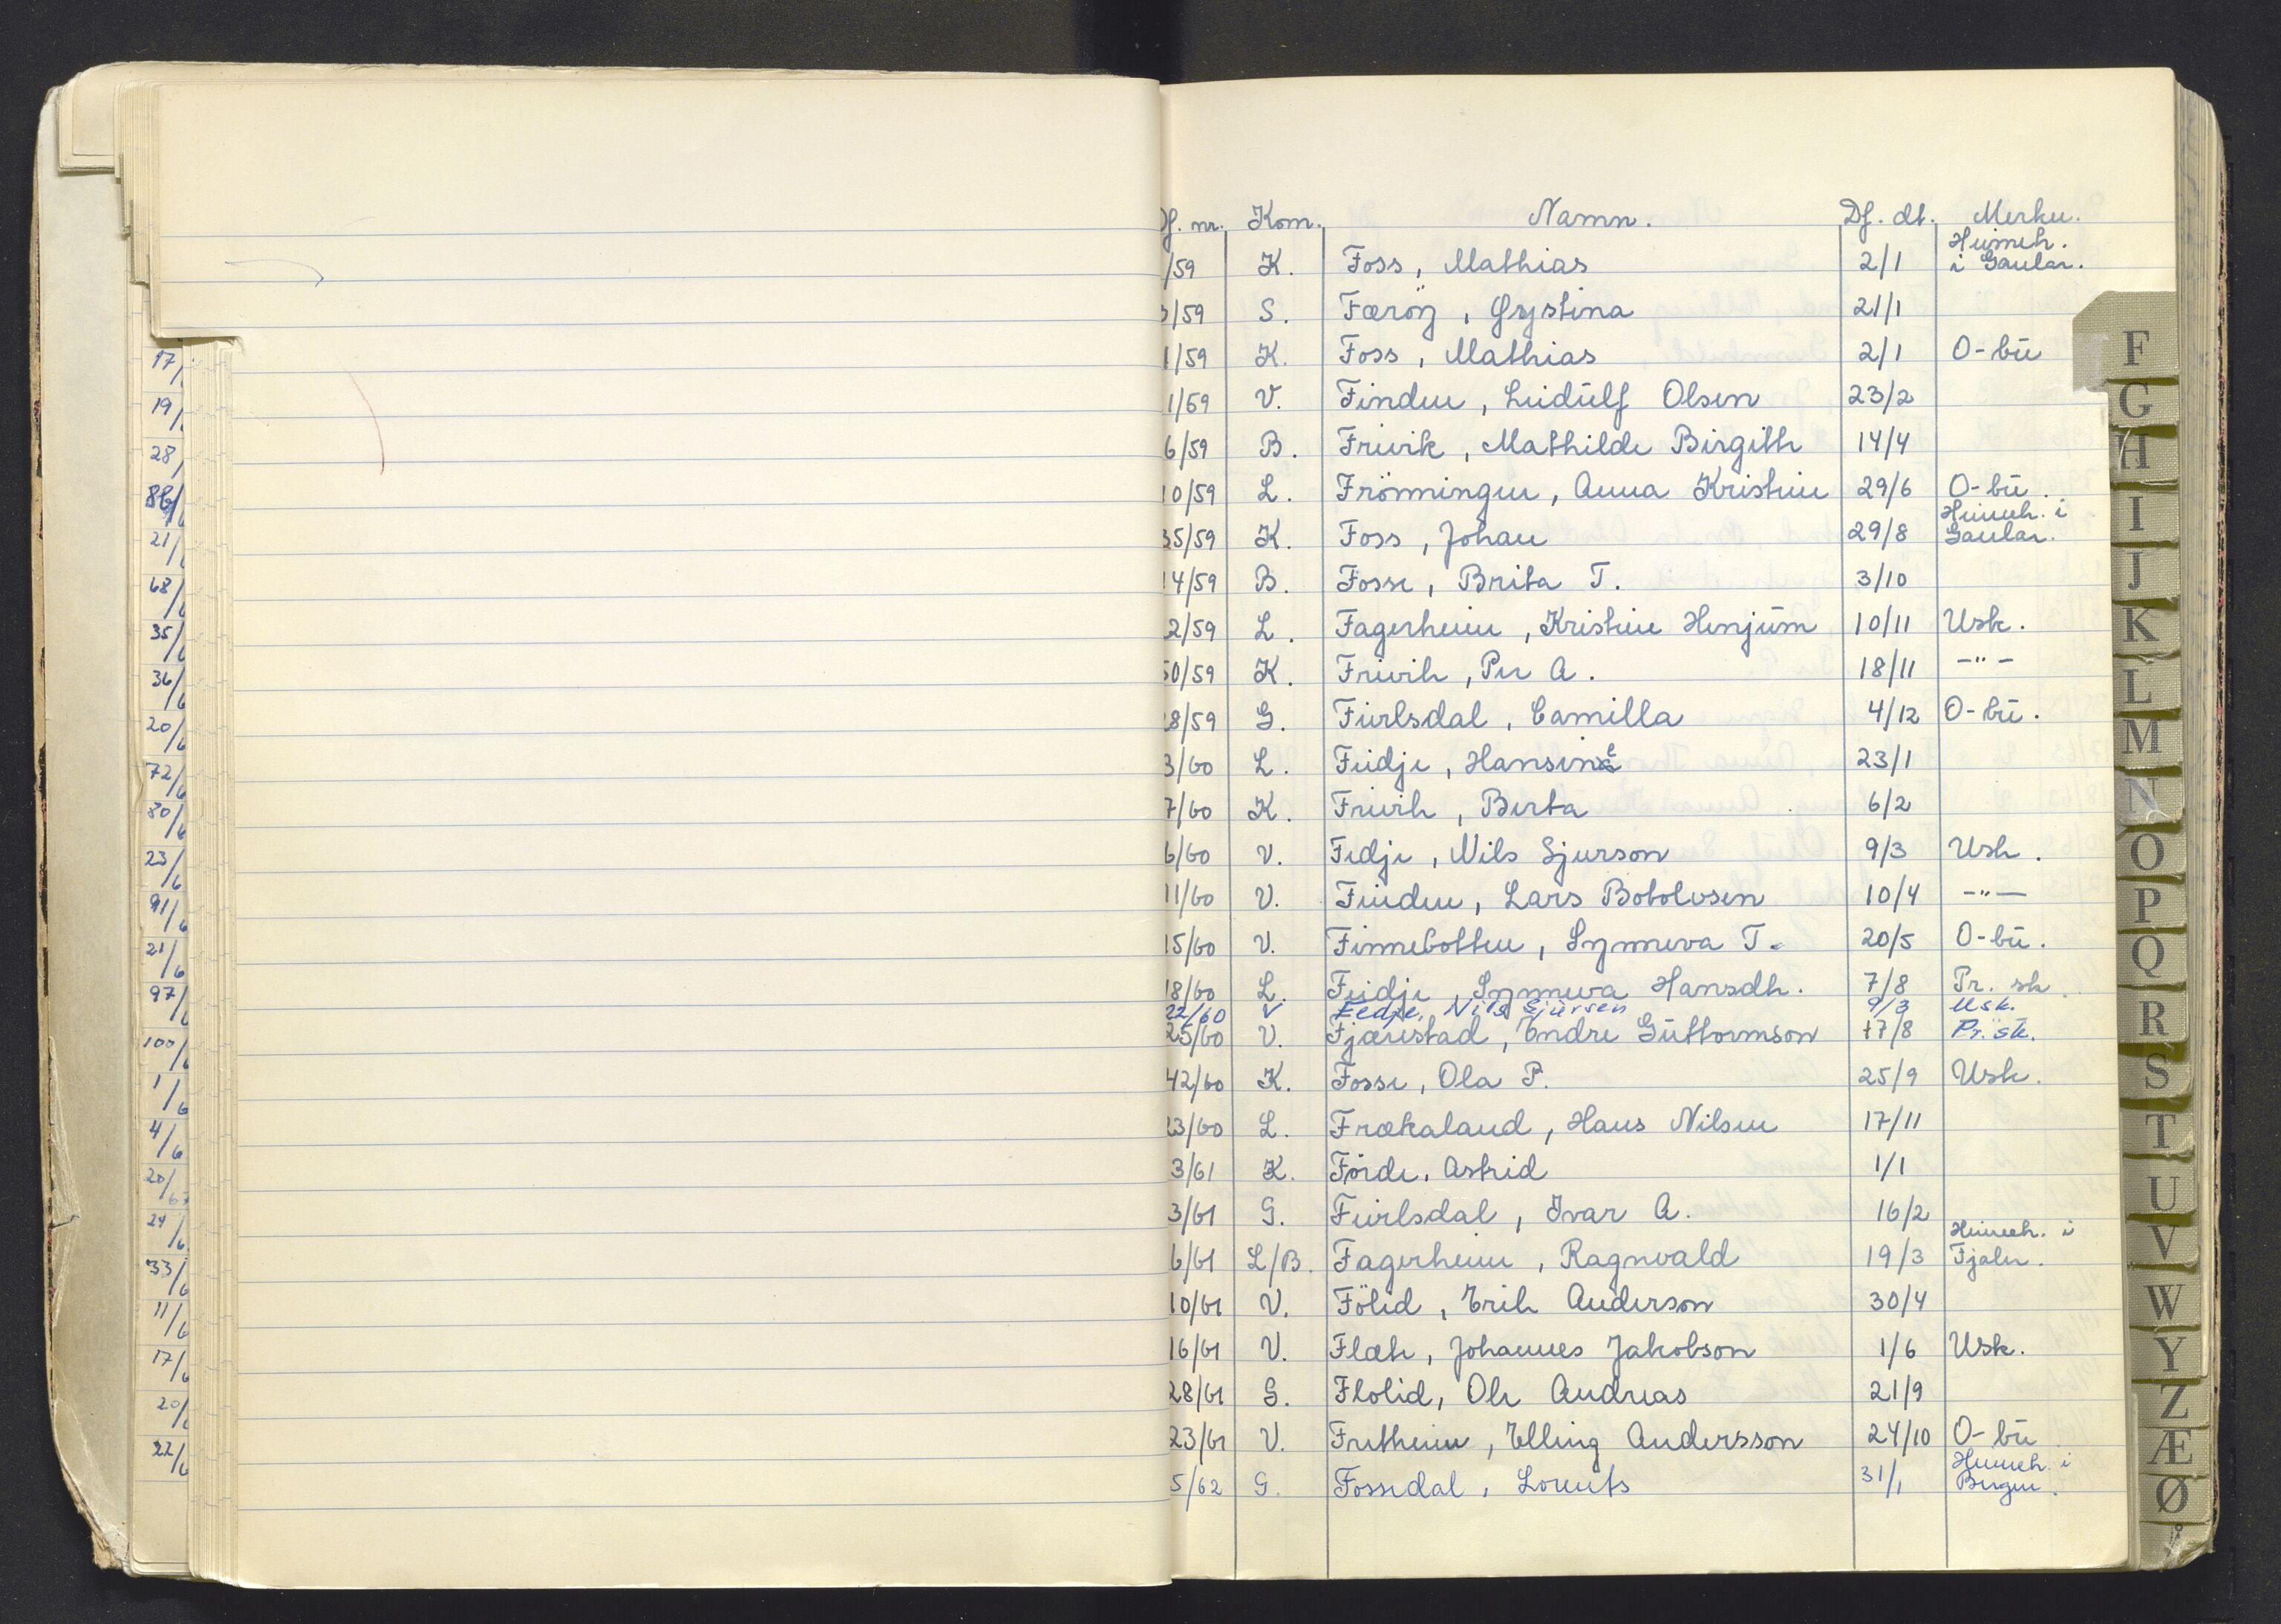 Df. nr. Kom. Namn. Df. dt. Merkn.
/59 K. Foss, Mathias 2/1 Heimeh. i Gaular.
3/59 S. Færöy, Gystina 21/1
1/59 K. Foss, Mathias 2/1 O-bu
1/59 V. Finden, Leidulf Olsen 23/2
6/59 B. Freivik, Mathilde Birgith 14/4
10/59 L. Frönningen, Anna Kristine 29/6 O-bu.
35/59 K. Foss, Johan 29/8 Heimeh. i Gaular.
14/59 B. Fosse, Brita T. 3/10
2/59 L. Fagerheim, Kristine Henjum 10/11 Usk.
50/59 K. Freivik, Per A. 18/11 -"-
28/59 G. Fivelsdal, Camilla 4/12 O-bu.
3/60 L. Feidje, Hansine 23/1
7/60 K. Freivik, Berta 6/2
6/60 V. Fedje, Nils Sjurson 9/3 Usk.
11/60 V. Finden, Lars Botolvsen 10/4 -"-
15/60 V. Finnebotten, Synneva T. 20/5 O-bu.
18/60 L. Feidje, Synneva Hansdh. 7/8 Pr. sk.
22/60 V Fedje, Nils Sjursen 9/3 Usk.
25/60 V. Fjærestad, Endre Guttormson 17/8 Pr. sk.
42/60 K. Fosse, Ola P. 25/9 Usk.
23/60 L. Frækaland, Hans Nilsen 17/11
3/61 K. Förde, Astrid 1/1
3/61 G. Fivelsdal, Ivar A. 16/2
6/61 L/B. Fagerheim, Ragnvald 19/3 Heimeh. i Fjaler.
10/61 V. Fölid, Erik Anderson 30/4
16/61 V. Flæk, Johannes Jakobson 1/6 Usk.
28/61 G. Flolid, Ole Andreas 21/9
23/61 V. Fretheim, Elling Andersson 24/10 O-bu
5/62 G. Fossedal, Lorents 31/1 Heimeh. i Bergen.
F
G
H
I
J
K
L
M
N
O
P
Q
R
S
T
U
V
W
Y
Z
Æ
Ø
Å
17/
19/
28/
86/
21/
68/
35/
36/6
20/6
72/6
30/6
23/6
91/6
21/6
97/6
100/6
1/6
4/6
20/63
24/6
33/6
11/6
17/6
20/
22/6